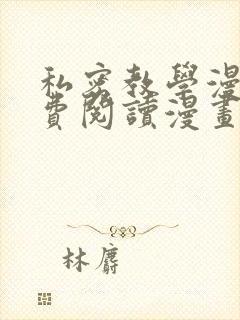 私密教學漫
費閱讀漫畫
林麝